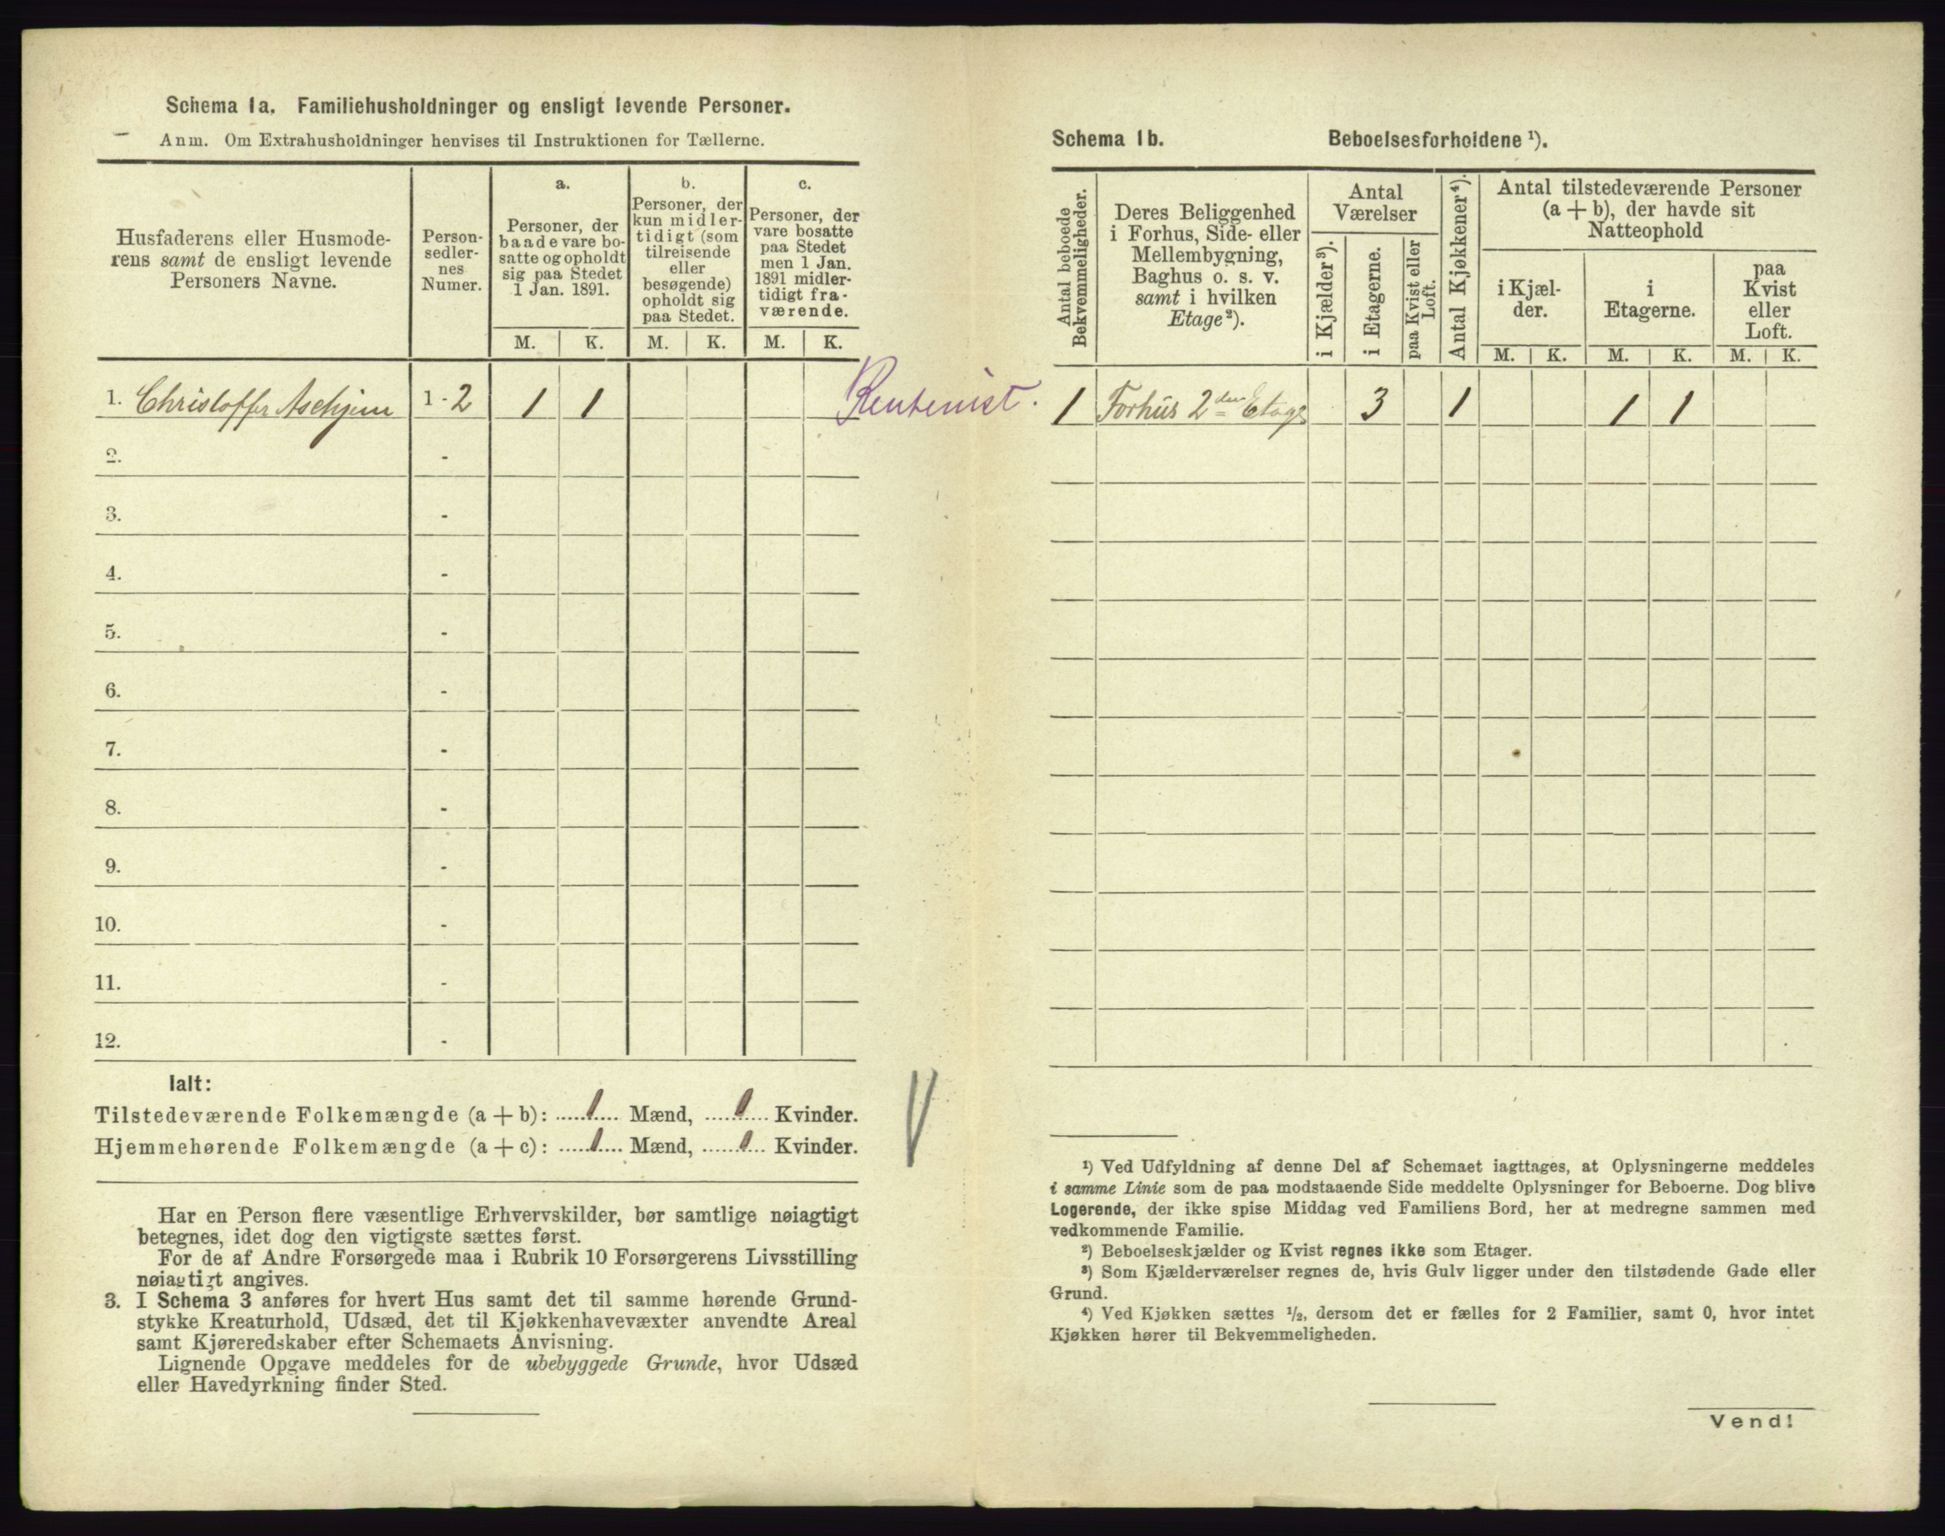 Schema 1a. Familiehusholdninger og ensligt levende Personer.
Anm. Om Extrahusholdninger henvises til Instruktionen for Tællerne.
Husfaderens eller Husmode-
rens samt de ensligt levende
Personers Navne.
Person-
sedler-
nes
Numer.
a.
Personer, der
baade vare bo-
satte og opholdt
sig paa Stedet
1 Jan. 1891.
b.
Personer, der
kun midler-
tidigt (som
tilreisende
eller
besøgende)
opholdt sig
paa Stedet.
c.
Personer, der
vare bosatte
paa Stedet
men 1 Jan.
1891 midler-
tidigt fra-
værende.
M. K. M. K. M. K.
1. Christoffer Aschjem 1 - 2 1 1 Rentenist.
2. -
3. -
4. -
5. -
6. -
7. -
8. -
9. -
10. -
11. -
12. -
Ialt:
Tilstedeværende Folkemængde (a + b): 1 Mænd, 1 Kvinder.
Hjemmehørende Folkemængde (a + c): 1 Mænd, 1 Kvinder.
Har en Person flere væsentlige Erhvervskilder, bør samtlige nøiagtigt
betegnes, idet dog den vigtigste sættes først.
For de af Andre Forsørgede maa i Rubrik 10 Forsørgerens Livsstilling
nøiagtigt angives.
3. I Schema 3 anføres for hvert Hus samt det til samme hørende Grund-
stykke Kreaturhold, Udsæd, det til Kjøkkenhavevæxter anvendte Areal
samt Kjøreredskaber efter Schemaets Anvisning.
Lignende Opgave meddeles for de ubebyggede Grunde, hvor Udsæd
eller Havedyrkning finder Sted.
Schema 1b. Beboelsesforholdene ¹).
Antal beboede
Bekvemmeligheder.
Deres Beliggenhed
i Forhus, Side- eller
Mellembygning,
Baghus o. s. v.
samt i hvilken
Etage²).
Antal
Værelser
i Kjælder³).
i Etagerne.
paa Kvist eller
Loft.
Antal Kjøkkener⁴).
Antal tilstedeværende Personer
(a + b), der havde sit
Natteophold
i Kjæl-
der.
i
Etagerne.
paa
Kvist
eller
Loft.
M. K. M. K. M. K.
1 Forhus 2den Etage 3 1 1 1
¹) Ved Udfyldning af denne Del af Schemaet iagttages, at Oplysningerne meddeles
i samme Linie som de paa modstaaende Side meddelte Oplysninger for Beboerne. Dog blive
Logerende, der ikke spise Middag ved Familiens Bord, her at medregne sammen med
vedkommende Familie.
²) Beboelseskjælder og Kvist regnes ikke som Etager.
³) Som Kjælderværelser regnes de, hvis Gulv ligger under den tilstødende Gade eller
Grund.
⁴) Ved Kjøkken sættes ½, dersom det er fælles for 2 Familier, samt 0, hvor intet
Kjøkken hører til Bekvemmeligheden.
Vend!